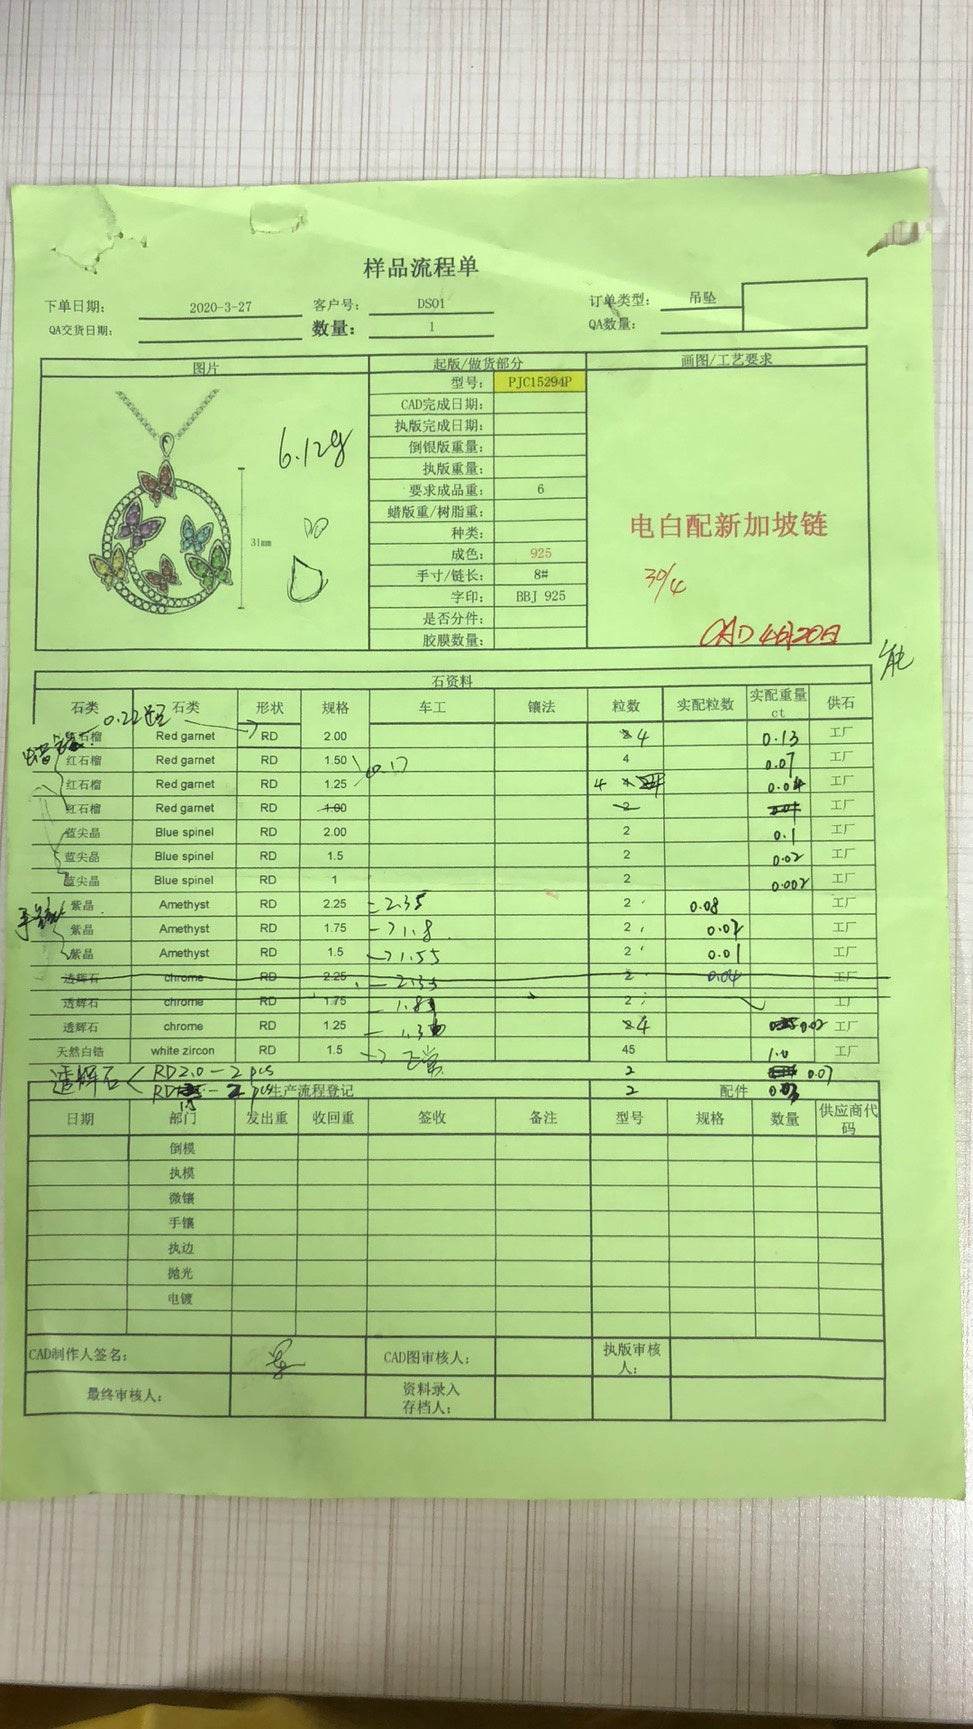 样品流程单
下单日期: 2020-3-27 客户号: DS01 订单类型: 吊坠
QA交货日期: 数量: 1 QA数量:
图片 起版/做货部分 画图/工艺要求
型号: PJC15294P
CAD完成日期:
执版完成日期:
6.12g
倒银版重量:
执版重量:
要求成品重: 6
蜡版重/树脂重:
电白配新加坡链
种类:
31mm
成色: 925
手寸/链长: 8#
30/4
字印: BBJ 925
是否分件:
CAD 4月20日
胶膜数量:
石资料
石类 石类 形状 规格 车工 镶法 粒数 实配粒数 实配重量ct 供石
0.22
石榴 Red garnet RD 2.00 4 0.13 工厂
红石榴 Red garnet RD 1.50 4 0.07 工厂
0.17
红石榴 Red garnet RD 1.25 4 0.04 工厂
红石榴 Red garnet RD 1.00 2 工厂
蓝尖晶 Blue spinel RD 2.00 2 0.1 工厂
蓝尖晶 Blue spinel RD 1.5 2 0.02 工厂
蓝尖晶 Blue spinel RD 1 2 0.002 工厂
紫晶 Amethyst RD 2.25 2.35 2 0.08 工厂
紫晶 Amethyst RD 1.75 →1.8 2 0.02 工厂
紫晶 Amethyst RD 1.5 →1.55 2 0.01 工厂
透辉石 chrome RD 2.25 2.35 2 0.04 工厂
透辉石 chrome RD 1.75 2 工厂
透辉石 chrome RD 1.25 4 0.02 工厂
天然白锆 white zircon RD 1.5 → 正常 45 1.0 工厂
透辉石 < RD 2.0 - 2 pcs 2 0.07
RD - 2 pcs 2
生产流程登记 配件
日期 部门 发出重 收回重 签收 备注 型号 规格 数量 供应商代码
倒模
执模
微镶
手镶
执边
抛光
电镀
CAD制作人签名: CAD图审核人: 执版审核人:
最终审核人: 资料录入存档人: